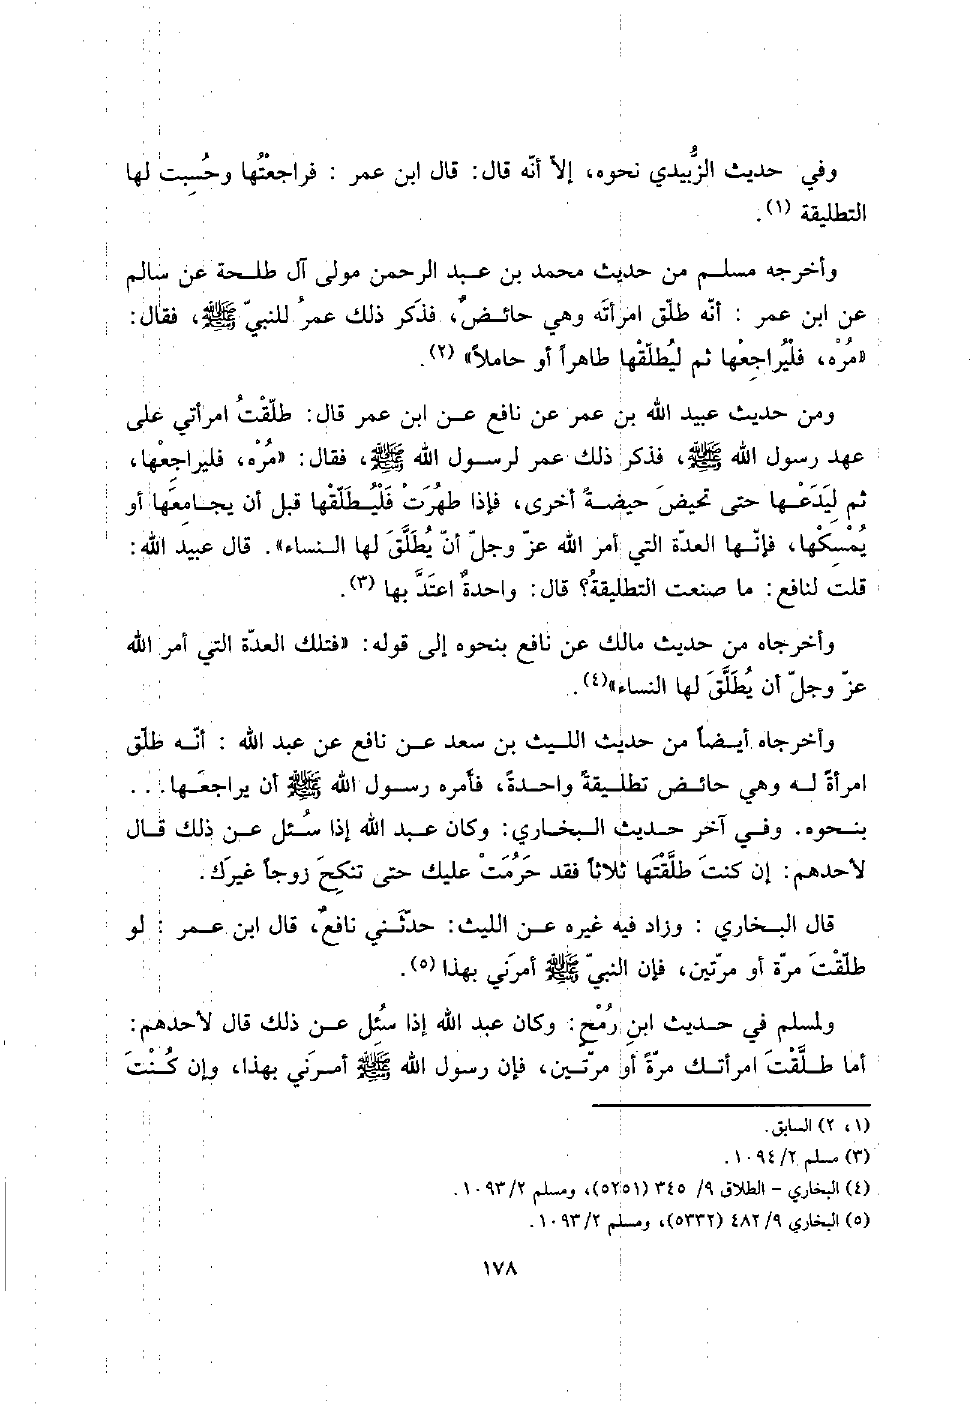 وفي حديث الزُّبيدي نحوه، إلاّ أنّه قال: قال ابن عمر : فراجعْتُها وحُسِبت لها
التطليقة (١).
وأخرجه مسلم من حديث محمد بن عبد الرحمن مولى آل طلحة عن سالم
عن ابن عمر : أنّه طلّق امرأتَه وهي حائضٌ، فذكَر ذلك عمرُ للنبيّ ﷺ، فقال:
«مُرْه، فلْيُراجِعْها ثم ليُطلّقْها طاهراً أو حاملاً» (٢).
ومن حديث عبيد الله بن عمر عن نافع عن ابن عمر قال: طلّقْتُ امرأتي على
عهد رسول الله ﷺ، فذكر ذلك عمر لرسول الله ﷺ، فقال: «مُرْه، فليراجِعْها،
ثم ليَدَعْها حتى تحيضَ حيضةً أخرى، فإذا طهُرَتْ فَلْيُطَلّقْها قبل أن يجامعَها أو
يُمْسِكْها، فإنّها العدّة التي أمر الله عزّ وجلّ أنّ يُطَلَّقَ لها النساء». قال عبيد الله:
قلت لنافع: ما صنعت التطليقةُ؟ قال: واحدةٌ اعتَدَّ بها (٣).
وأخرجاه من حديث مالك عن نافع بنحوه إلى قوله: «فتلك العدّة التي أمر الله
عزّ وجلّ أن يُطَلَّقَ لها النساء»(٤).
وأخرجاه أيضاً من حديث الليث بن سعد عن نافع عن عبد الله : أنّه طلّق
امرأةً له وهي حائض تطليقةً واحدةً، فأمره رسول الله ﷺ أن يراجعَها. . .
بنحوه. وفي آخر حديث البخاري: وكان عبد الله إذا سُئِل عن ذلك قال
لأحدهم: إن كنتَ طلَّقْتَها ثلاثاً فقد حَرُمَتْ عليك حتى تنكِحَ زوجاً غيرَك.
قال البخاري : وزاد فيه غيره عن الليث: حدّثَني نافعٌ، قال ابن عمر : لو
طلّقْتَ مرّة أو مرّتين، فإن النبيّ ﷺ أمرَني بهذا (٥).
ولمسلم في حديث ابنِ رُمْحٍ: وكان عبد الله إذا سُئِل عن ذلك قال لأحدهم:
أما طلَّقْتَ امرأتك مرّةً أو مرّتين، فإن رسول الله ﷺ أمرَني بهذا، وإن كُنْتَ
(١، ٢) السابق.
(٣) مسلم ٢/ ١٠٩٤.
(٤) البخاري - الطلاق ٩/ ٣٤٥ (٥٢٥١)، ومسلم ٢/ ١٠٩٣.
(٥) البخاري ٩/ ٤٨٢ (٥٣٣٢)، ومسلم ٢/ ١٠٩٣.
١٧٨